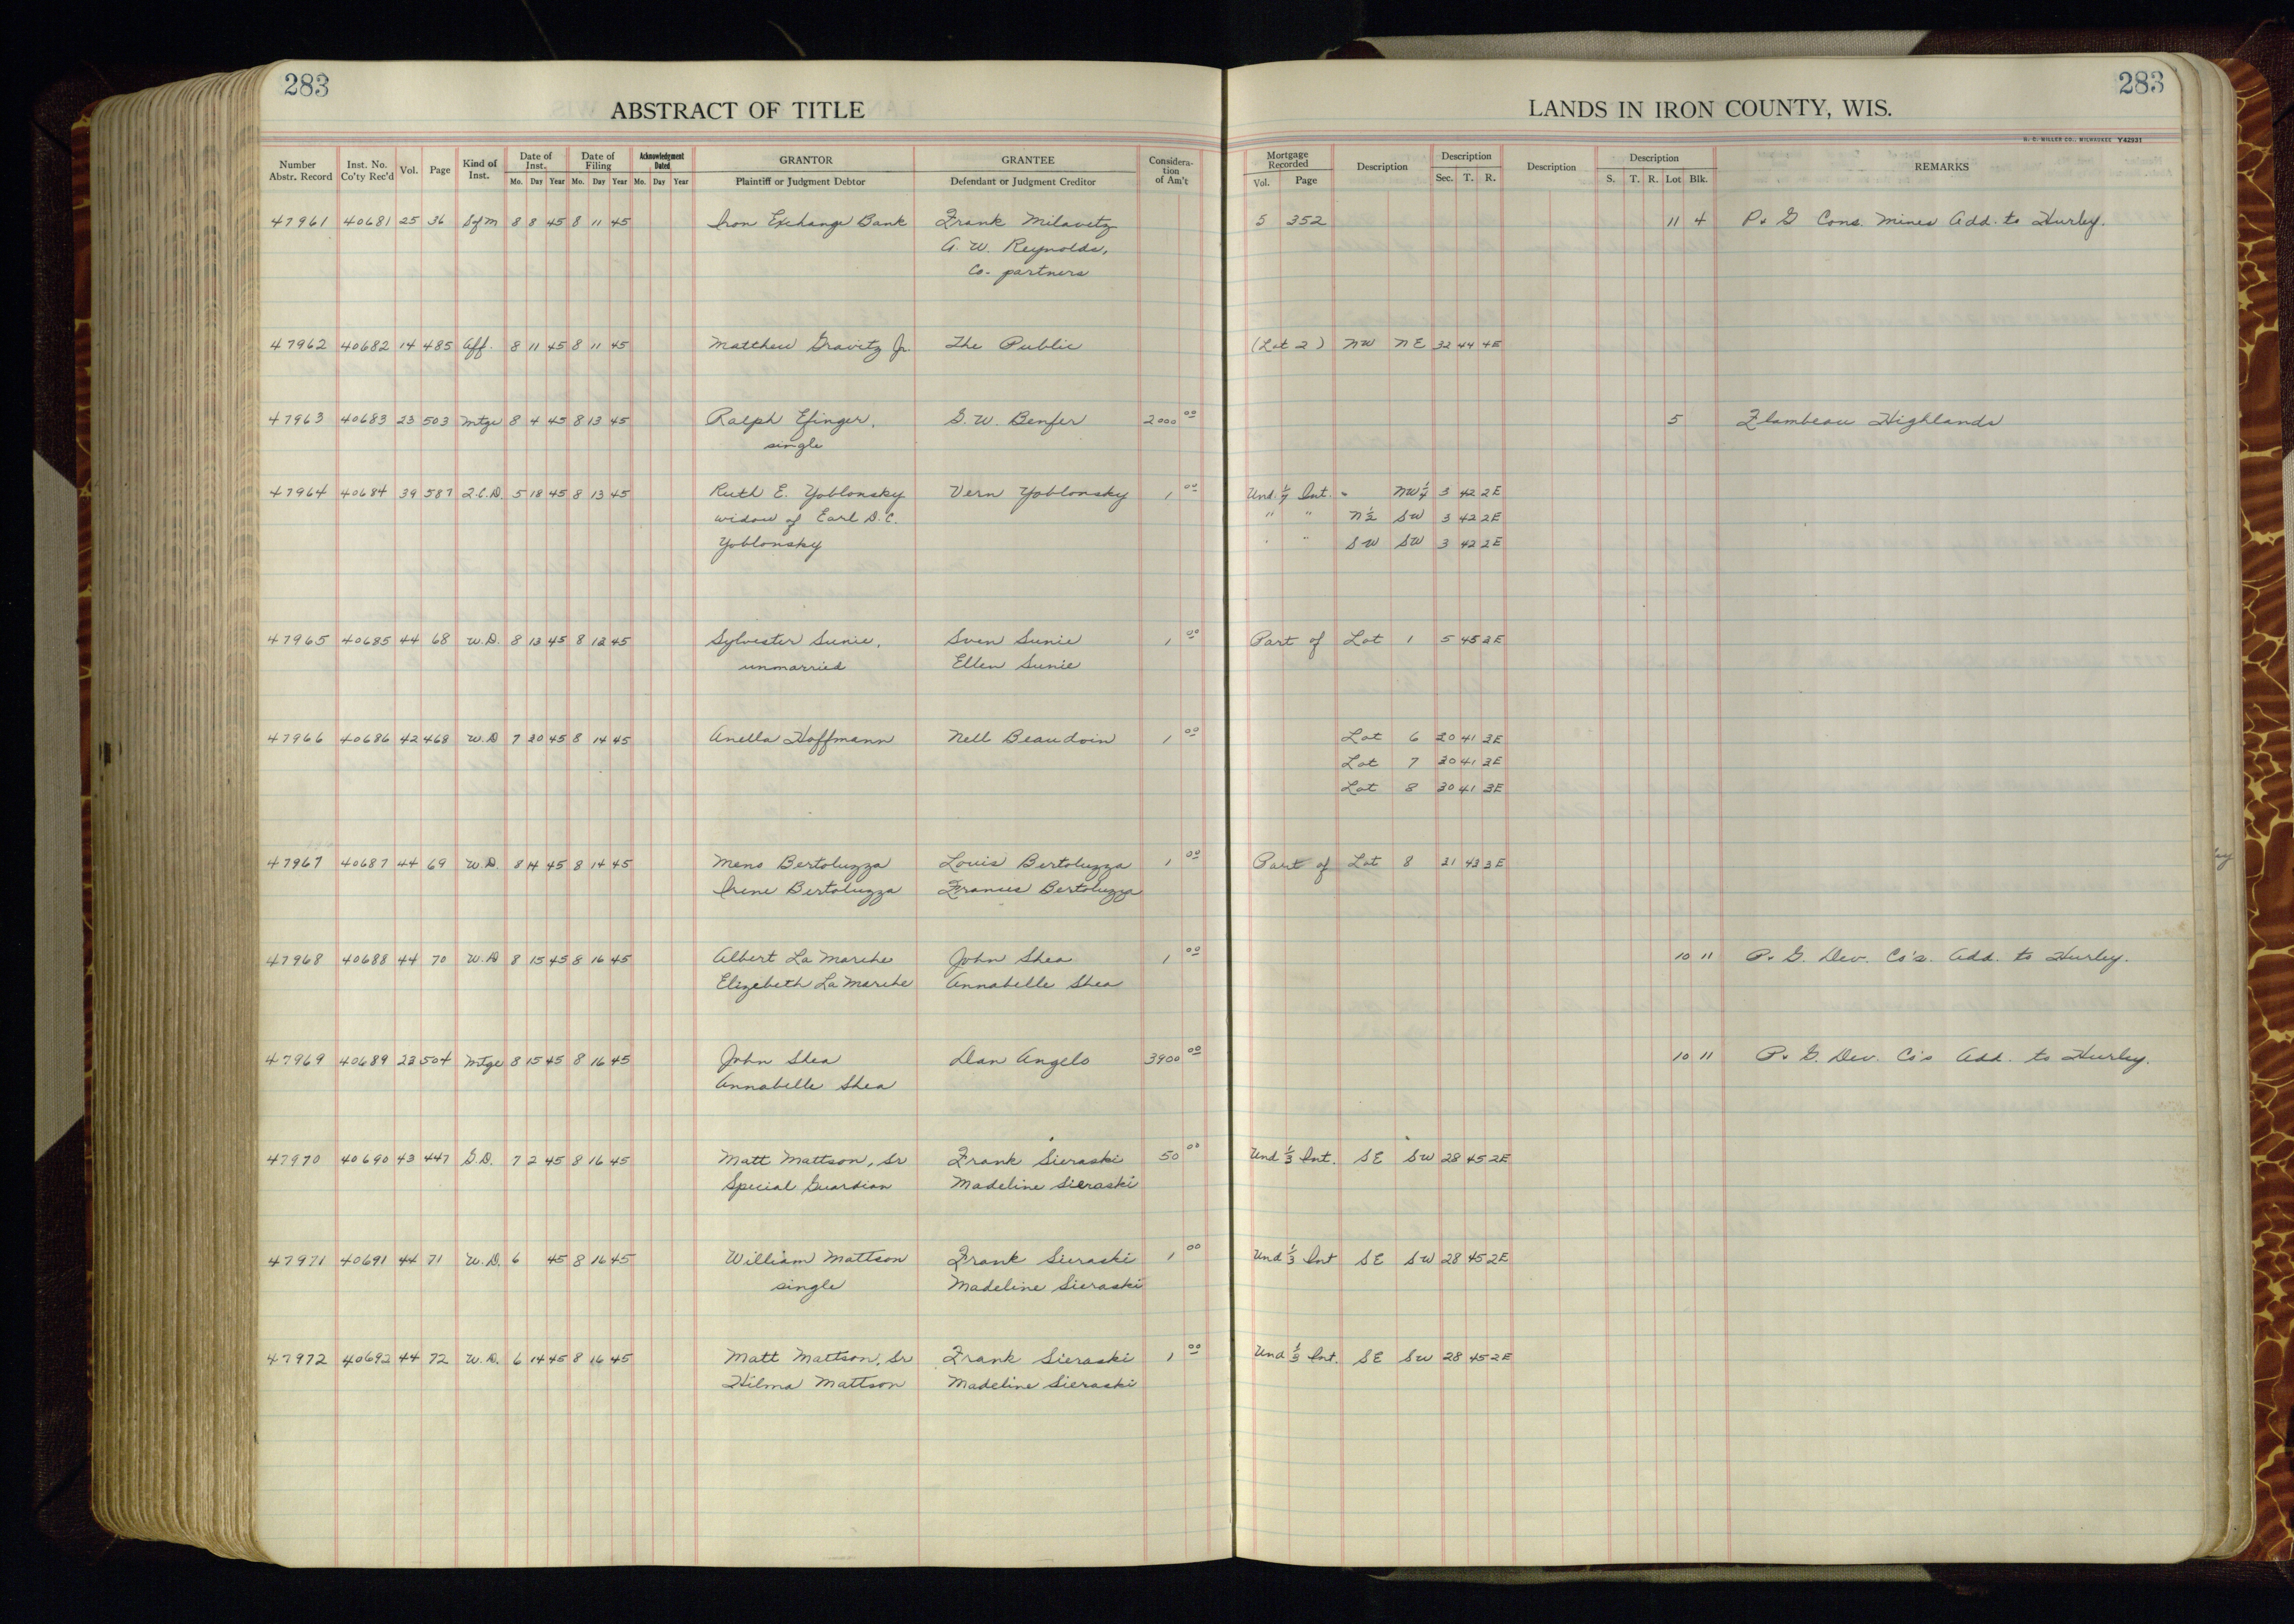 283
283
ABSTRACT OF TITLE
LANDS IN IRON COUNTY, WIS.
H. C. MILLER CO., MILWAUKEE Y42931
Number Abstr. Record Inst. No. Co'ty Rec'd Vol. Page Kind of Inst. Date of Inst. Mo. Day Year Date of Filing Mo. Day Year Acknowledgment Dated Mo. Day Year GRANTOR Plaintiff or Judgment Debtor GRANTEE Defendant or Judgment Creditor Considera-tion of Am't Mortgage Recorded Vol. Page Description Description Sec. T. R. Description Description S. T. R. Lot Blk. REMARKS
47961 40681 25 36 Sfm 8 8 45 8 11 45 Iron Exchange Bank Frank Milavetz 5 352 11 4 P. & G Cons. Mines Add. to Hurley.
A. W. Reynolds,
Co-partners
47962 40682 14 485 Aff. 8 11 45 8 11 45 Matthew Gravitz Jr. The Public (Lot 2) NW NE 32 44 4E
47963 40683 23 503 Mtge 8 4 45 8 13 45 Ralph Efinger, G. W. Benfer 2000 00 5 Flambeau Highlands
single
47964 40684 39 587 Q.C.D. 5 18 45 8 13 45 Ruth E. Yoblonsky Vern Yoblonsky 1 00 Und. 1/7 Int. NW 1/4 3 42 2E
widow of Earl D.C. " " N 1/2 SW 3 42 2E
Yoblonsky " " SW SW 3 42 2E
47965 40685 44 68 W.D. 8 13 45 8 13 45 Sylvester Sunie, Sven Sunie 1 00 Part of Lot 1 5 45 2E
unmarried Ellen Sunie
47966 40686 42 468 W.D 7 30 45 8 14 45 Anella Hoffmann Nell Beaudoin 1 00 Lot 6 30 41 3E
Lot 7 30 41 3E
Lot 8 30 41 3E
47967 40687 44 69 W.D. 8 14 45 8 14 45 Meno Bertoluzza Louis Bertoluzza 1 00 Part of Lot 8 31 43 3E
Irene Bertoluzza Frances Bertoluzza
47968 40688 44 70 W.D 8 15 45 8 16 45 Albert La Marche John Shea 1 00 10 11 P. & G. Dev. Co's. Add. to Hurley.
Elizebeth La Marche Annabelle Shea
47969 40689 23 504 Mtge 8 15 45 8 16 45 John Shea Dan Angelo 3900 00 10 11 P. & G. Dev. Co's Add. to Hurley.
Annabelle Shea
47970 40690 43 447 G.D. 7 2 45 8 16 45 Matt Mattson, Sr Frank Sieraski 50 00 Und 1/3 Int. SE SW 28 45 2E
Special Guardian Madeline Sieraski
47971 40691 44 71 W.D. 6 45 8 16 45 William Mattson Frank Sieraski 1 00 Und 1/3 Int SE SW 28 45 2E
single Madeline Sieraski
47972 40692 44 72 W.D. 6 14 45 8 16 45 Matt Mattson, Sr Frank Sieraski 1 00 Und 1/3 Int. SE SW 28 45 2E
Hilma Mattson Madeline Sieraski